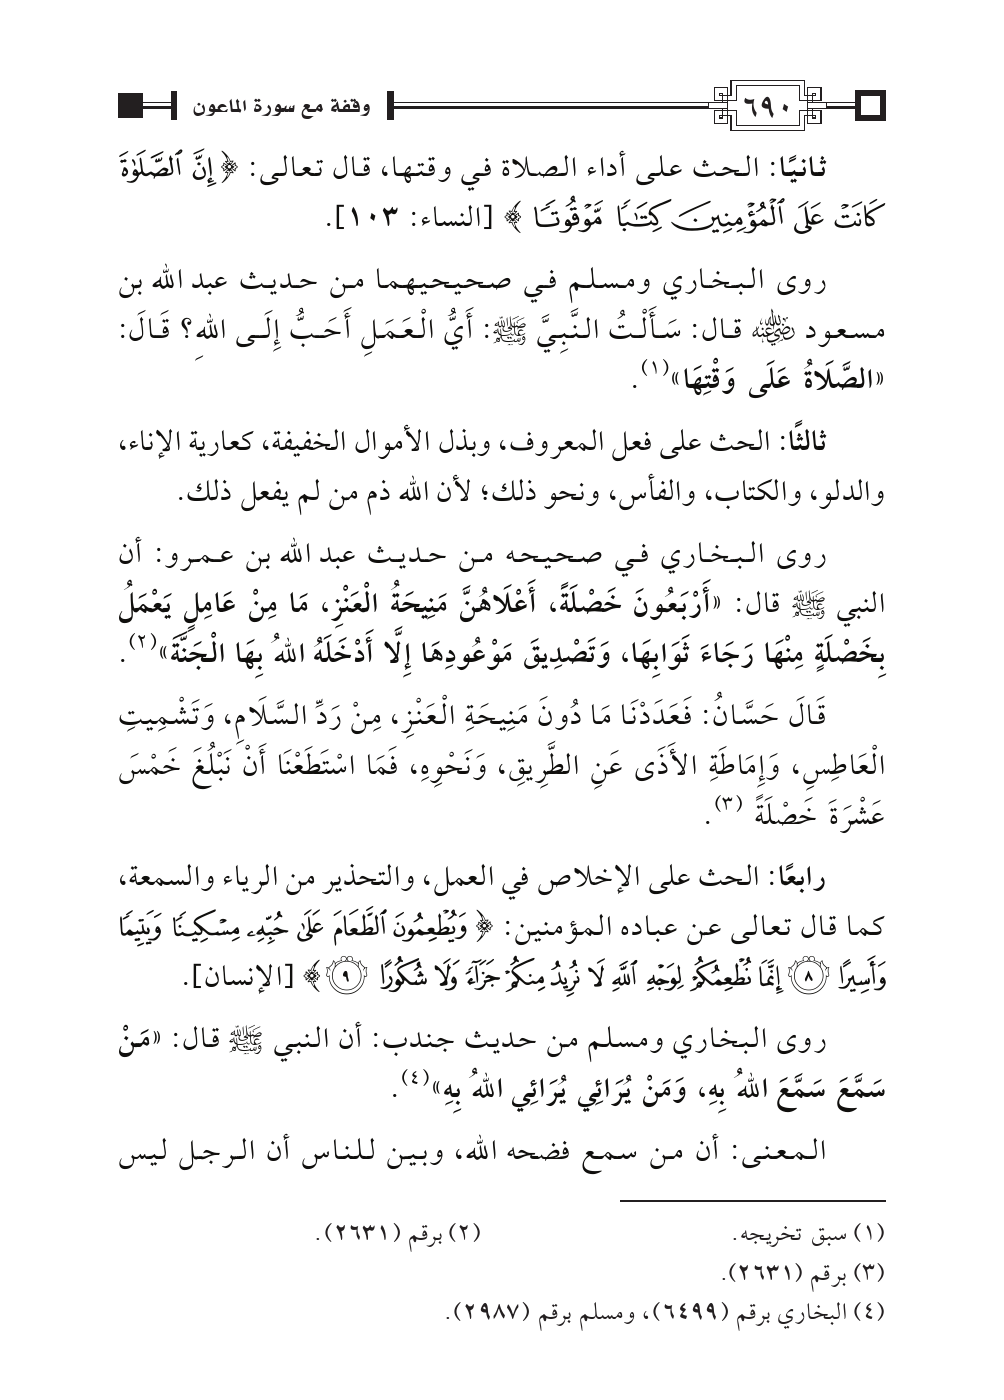 ٦٩٠
وقفة مع سورة الماعون
ثانيًا: الحث على أداء الصلاة في وقتها، قال تعالى: ﴿ إِنَّ ٱلصَّلَوٰةَ
كَانَتْ عَلَى ٱلْمُؤْمِنِينَ كِتَٰبًا مَّوْقُوتًا ﴾ [النساء: ١٠٣].
روى البخاري ومسلم في صحيحيهما من حديث عبد الله بن
مسعود رضي الله عنه قال: سَأَلْتُ النَّبِيَّ ﷺ: أَيُّ الْعَمَلِ أَحَبُّ إِلَى اللهِ؟ قَالَ:
«الصَّلَاةُ عَلَى وَقْتِهَا»(١).
ثالثًا: الحث على فعل المعروف، وبذل الأموال الخفيفة، كعارية الإناء،
والدلو، والكتاب، والفأس، ونحو ذلك؛ لأن الله ذم من لم يفعل ذلك.
روى البخاري في صحيحه من حديث عبد الله بن عمرو: أن
النبي ﷺ قال: «أَرْبَعُونَ خَصْلَةً، أَعْلَاهُنَّ مَنِيحَةُ الْعَنْزِ، مَا مِنْ عَامِلٍ يَعْمَلُ
بِخَصْلَةٍ مِنْهَا رَجَاءَ ثَوَابِهَا، وَتَصْدِيقَ مَوْعُودِهَا إِلَّا أَدْخَلَهُ اللهُ بِهَا الْجَنَّةَ»(٢).
قَالَ حَسَّانُ: فَعَدَدْنَا مَا دُونَ مَنِيحَةِ الْعَنْزِ، مِنْ رَدِّ السَّلَامِ، وَتَشْمِيتِ
الْعَاطِسِ، وَإِمَاطَةِ الأَذَى عَنِ الطَّرِيقِ، وَنَحْوِهِ، فَمَا اسْتَطَعْنَا أَنْ نَبْلُغَ خَمْسَ
عَشْرَةَ خَصْلَةً (٣).
رابعًا: الحث على الإخلاص في العمل، والتحذير من الرياء والسمعة،
كما قال تعالى عن عباده المؤمنين: ﴿ وَيُطْعِمُونَ ٱلطَّعَامَ عَلَىٰ حُبِّهِۦ مِسْكِينًا وَيَتِيمًا
وَأَسِيرًا ٨ إِنَّمَا نُطْعِمُكُمْ لِوَجْهِ ٱللَّهِ لَا نُرِيدُ مِنكُمْ جَزَآءً وَلَا شُكُورًا ٩ ﴾ [الإنسان].
روى البخاري ومسلم من حديث جندب: أن النبي ﷺ قال: «مَنْ
سَمَّعَ سَمَّعَ اللهُ بِهِ، وَمَنْ يُرَائِي يُرَائِي اللهُ بِهِ»(٤).
المعنى: أن من سمع فضحه الله، وبين للناس أن الرجل ليس
(١) سبق تخريجه. (٢) برقم (٢٦٣١).
(٣) برقم (٢٦٣١).
(٤) البخاري برقم (٦٤٩٩)، ومسلم برقم (٢٩٨٧).